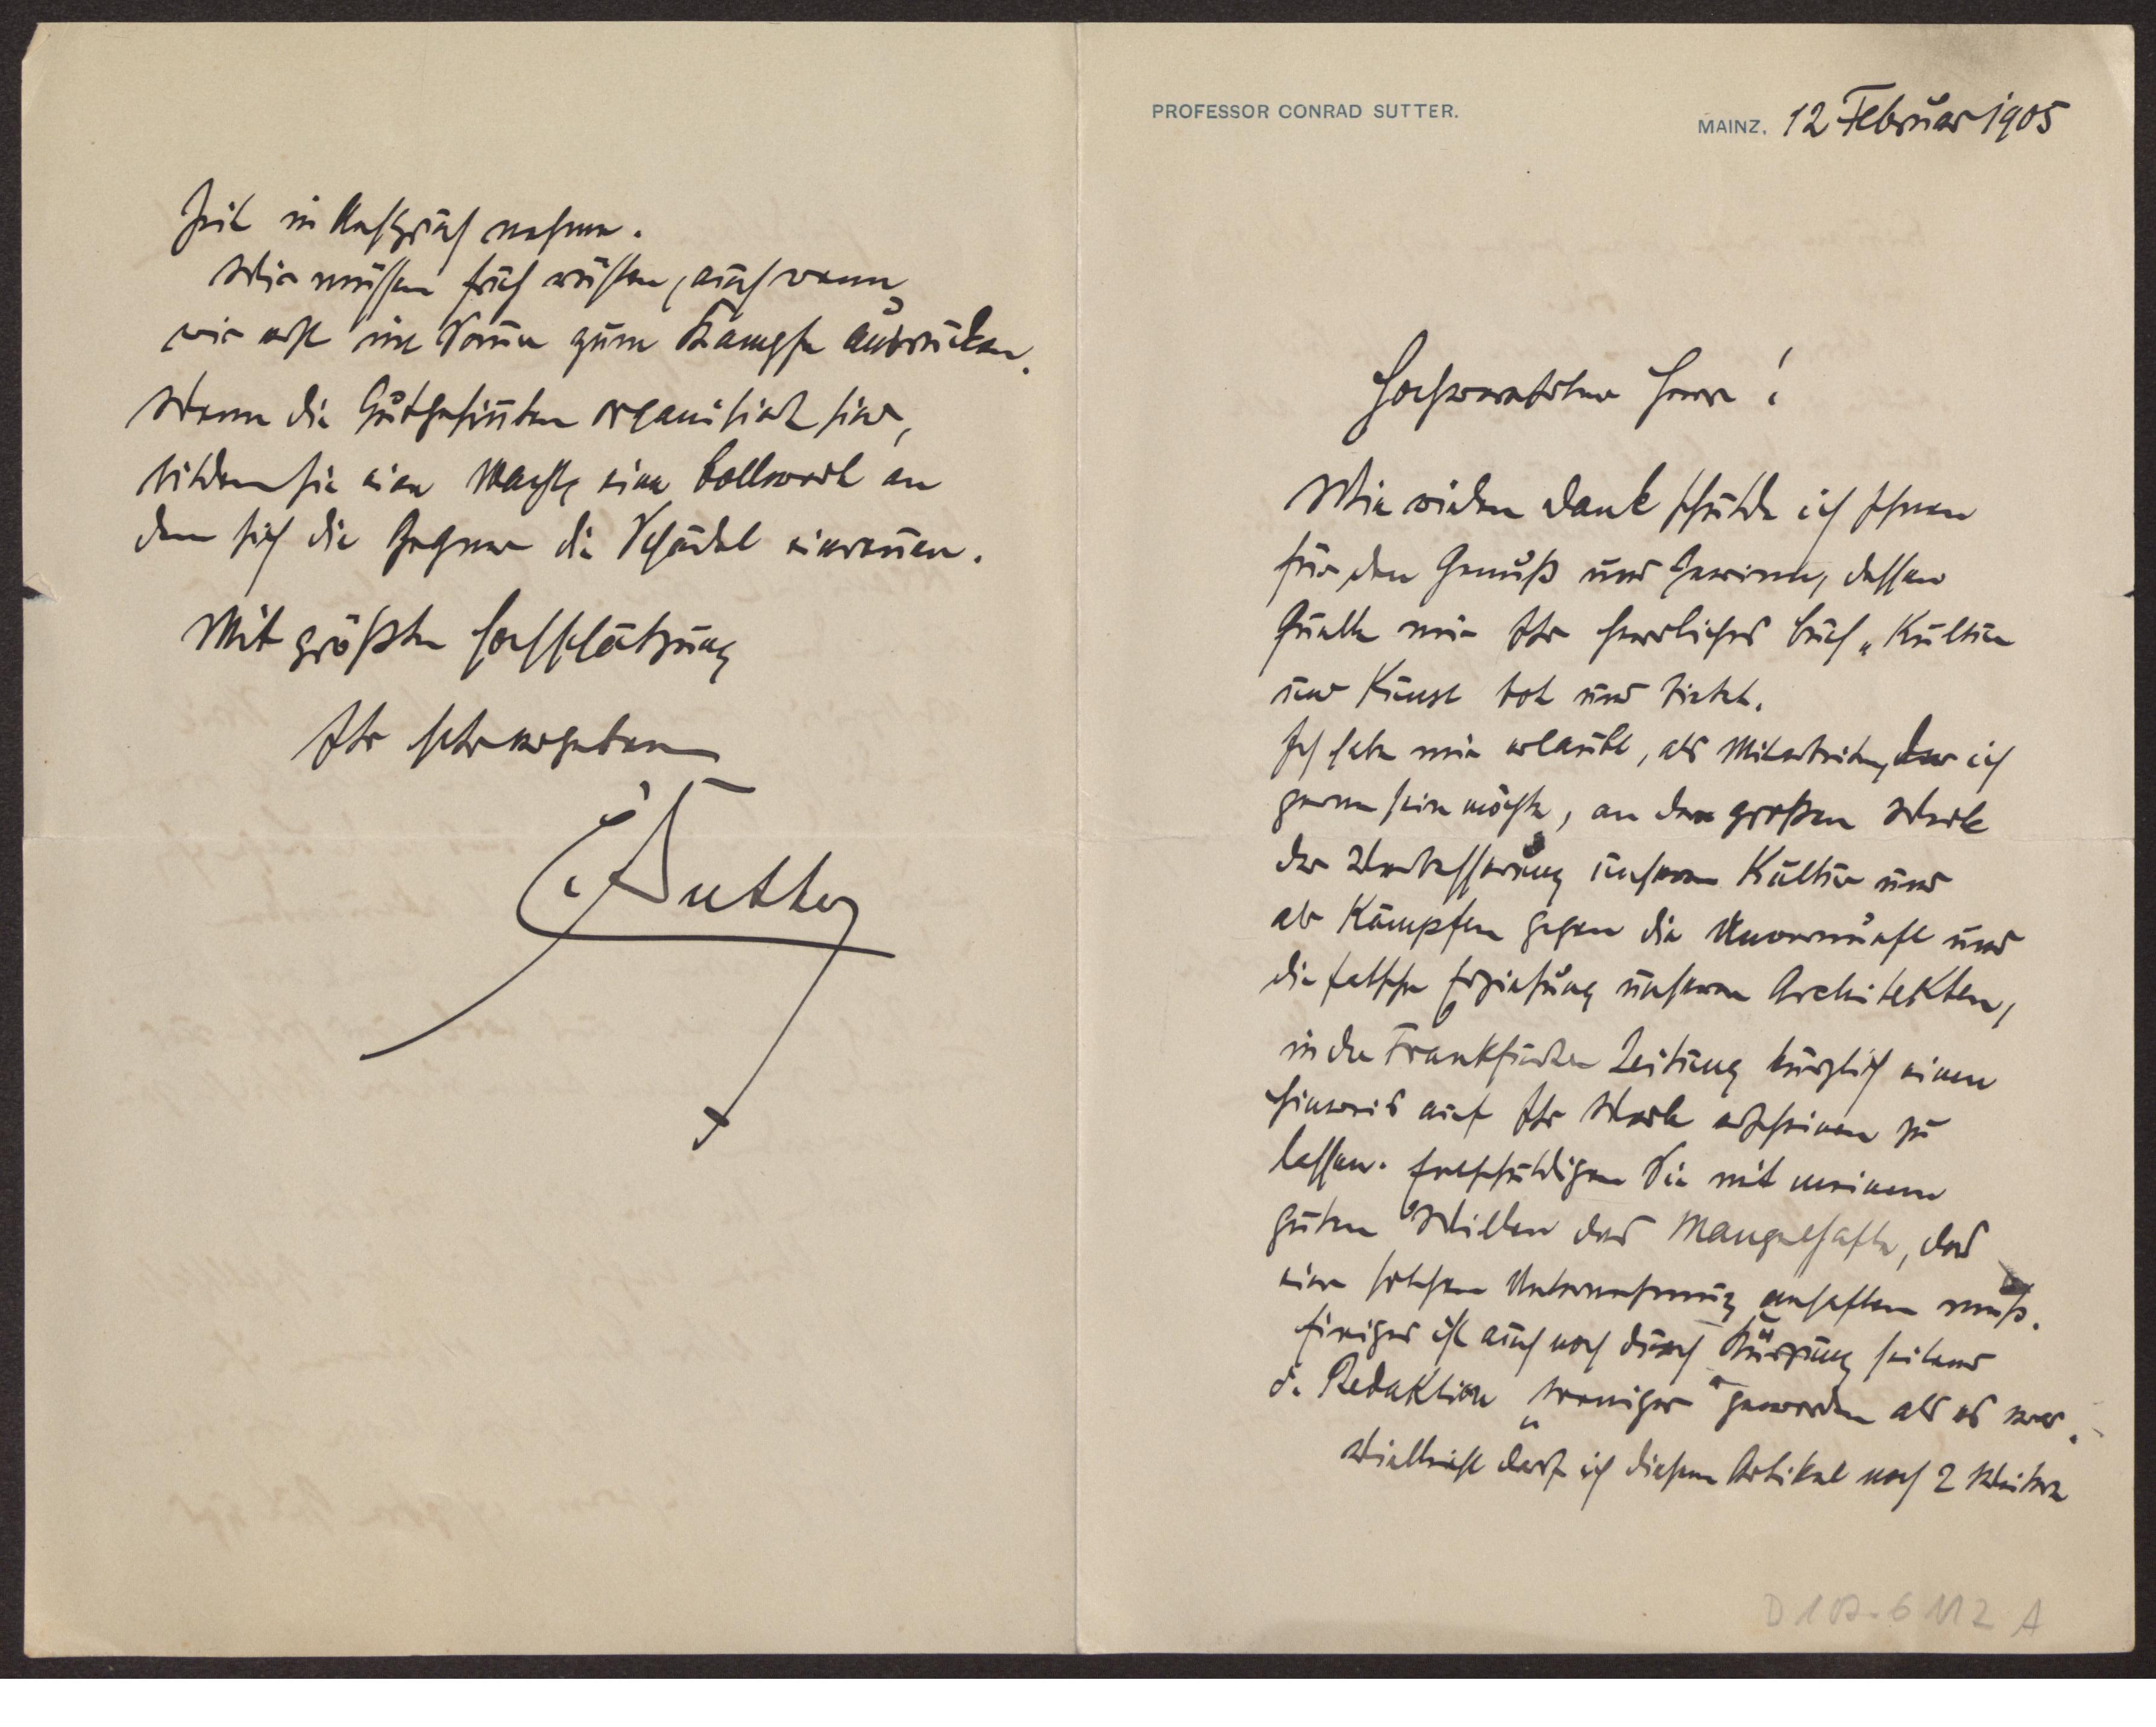 PROFESSOR CONRAD SUTTER.
MAINZ, 12 Februar 1905
Hochverehrter Herr!
Wie vielen Dank schulde ich Ihnen
für den Genuß und Gewinn, dessen
Quelle mir Ihr herrliches Buch „Kultur
und Kunst bot und bietet.
Ich habe mir erlaubt, als Mitarbeiter, der ich
gerne sein möchte, an dem großen Werke
der Verbesserung unserer Kultur und
als Kämpfer gegen die Unvernunft und
die falsche Erziehung unserer Architekten,
in der Frankfurter Zeitung kürzlich einen
Hinweis auf Ihr Werk erscheinen zu
lassen. Entschuldigen Sie mit meinem
guten Willen das Mangelhafte, das
einer solchen Unternehmung anhaften muß.
Einiges ist auch noch durch Kürzung seitens
d. Redaktion „weniger" geworden als es war.
Vielleicht darf ich diesem Artikel noch 2 Weitere
Zeit in Anspruch nehmen.
Wir müssen früh rüsten, auch wenn
wir erst im Sommer zum Kampfe ausrücken.
Wenn die Gutgesinnten organisiert sind,
bilden sie eine Macht, ein Bollwerk an
dem sich die Gegner die Schädel einrennen.
Mit größter Hochschätzung
Ihr sehr ergebener
C Sutter
D 102-6112 A